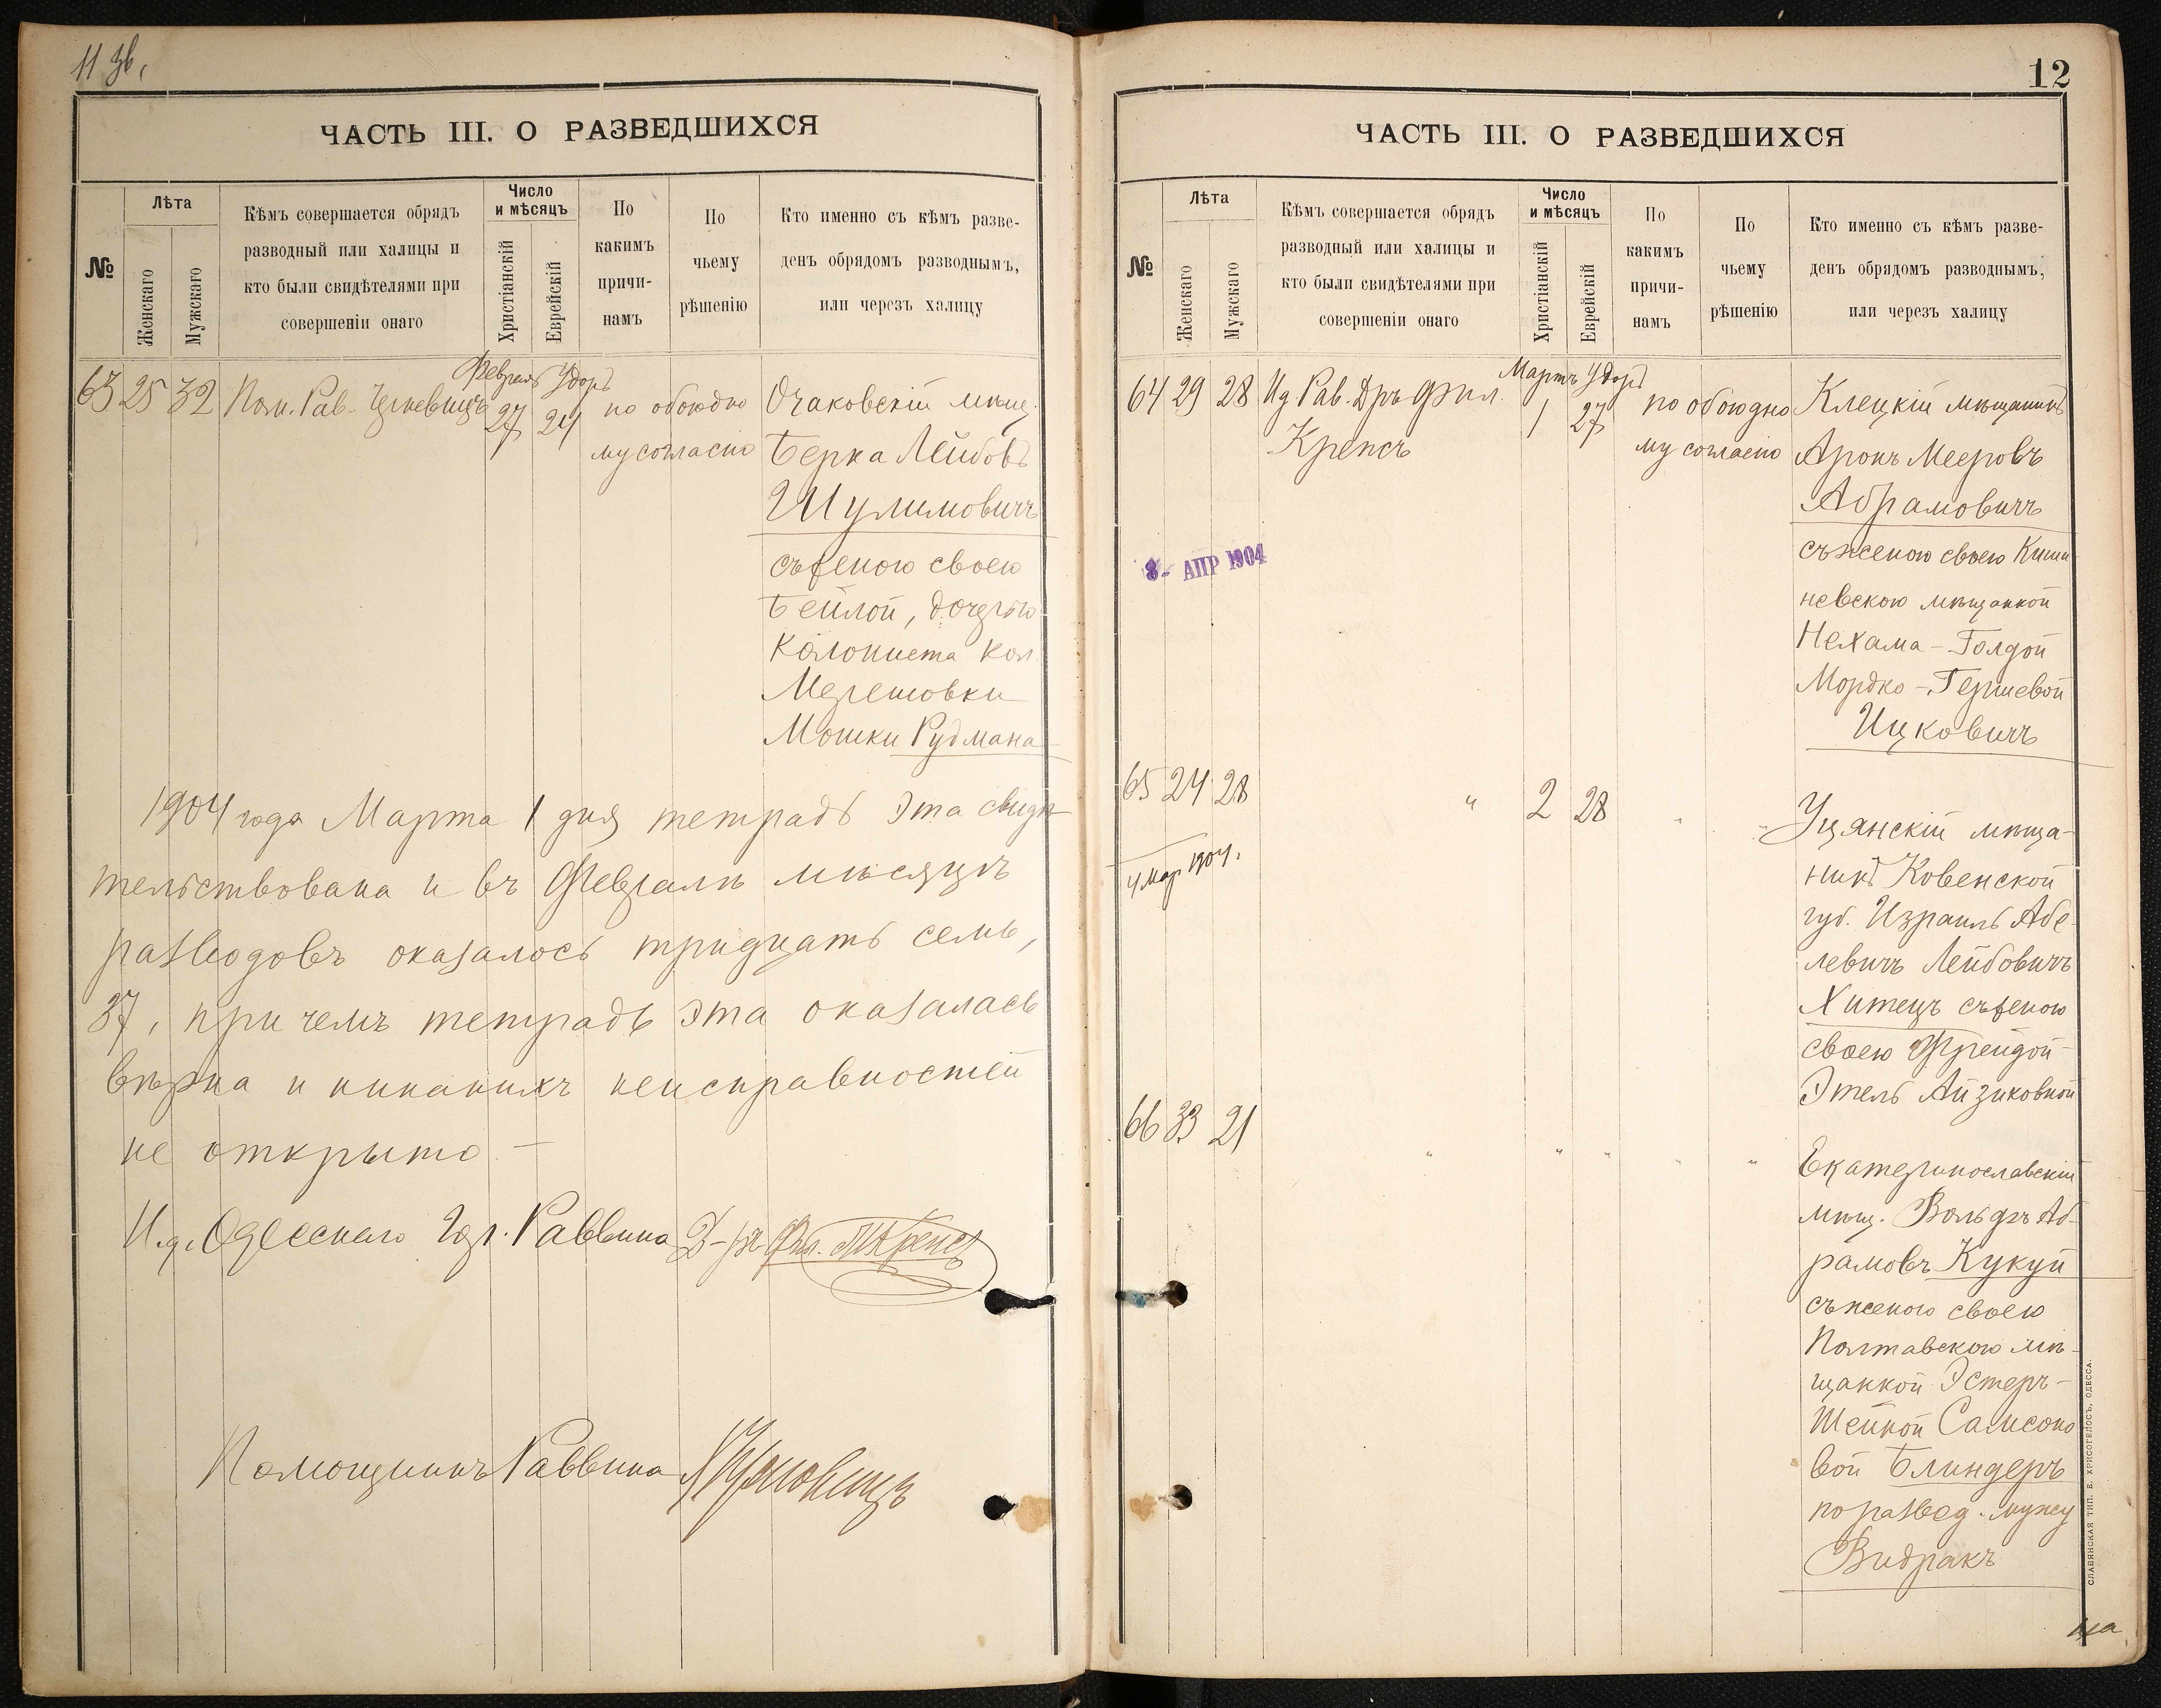 11 зв.
ЧАСТЬ III. О РАЗВЕДШИХСЯ
№
Лѣта
Женскаго
Мужскаго
Кѣмъ совершается обрядъ
разводный или халицы и
кто были свидѣтелями при
совершеніи онаго
Число
и мѣсяцъ
Христіанскій
Еврейскій
По
какимъ
причи-
намъ
По
чьему
рѣшенію
Кто именно съ кѣмъ разве-
денъ обрядомъ разводнымъ,
или черезъ халицу
63 25 32 Пом. Рав.
Февраль Удоръ
27 24
по обоюдно
му согласію
Очаковскій мѣщ.
Берка Лейбовъ
Шулимовичъ
съ женою своею
Бейлой, дочерью
Колониста кол.
Мошки Рудмана
1904 года Марта 1 дня тетрадь эта свидѣ-
тельствована и въ Февралѣ мѣсяцѣ
разводовъ оказалось тридцать семь,
37, при чемъ тетрадь эта оказалась
вѣрна и никакихъ неисправностей
не открыто —
И. д. Одесскаго Гор. Раввина Д-ръ Фил. Крепсъ
Помощникъ Раввина
12
ЧАСТЬ III. О РАЗВЕДШИХСЯ
№
Лѣта
Женскаго
Мужскаго
Кѣмъ совершается обрядъ
разводный или халицы и
кто были свидѣтелями при
совершеніи онаго
Число
и мѣсяцъ
Христіанскій
Еврейскій
По
какимъ
причи-
намъ
По
чьему
рѣшенію
Кто именно съ кѣмъ разве-
денъ обрядомъ разводнымъ,
или черезъ халицу
64 29 28 Ид Рав. Дръ Фил.
Крепсъ
Мартъ Удоръ
1 27
по обоюдно
му согласію
Клецкій мѣщанинъ
Аронъ Мееровъ
Абрамовичъ
съ женою своею Киши-
невскою мѣщанкой
Нехама-Голдой
Мордко-Гершевой
Ицковичъ
8- АПР 1904
65 24 28 " 2 28 " "
4 Мар 1904.
Уцянскій мѣща-
нинъ Ковенской
губ. Израиль Абе-
левичъ Лейбовичъ
Хитецъ съ женою
своею Фрейдой-
Этель Айзиковной
66 33 21 " " " " "
Екатеринославскій
мѣщ. Вольфъ Аб-
рамовъ Кукуй
съ женою своею
Полтавскою мѣ-
щанкой Эстеръ-
Шейной Самсоно
вой Блиндеръ
по развед. мужу
Видракъ
СЛАВЯНСКАЯ ТИП. Е. ХРИСОГЕЛОСЪ, ОДЕССА.